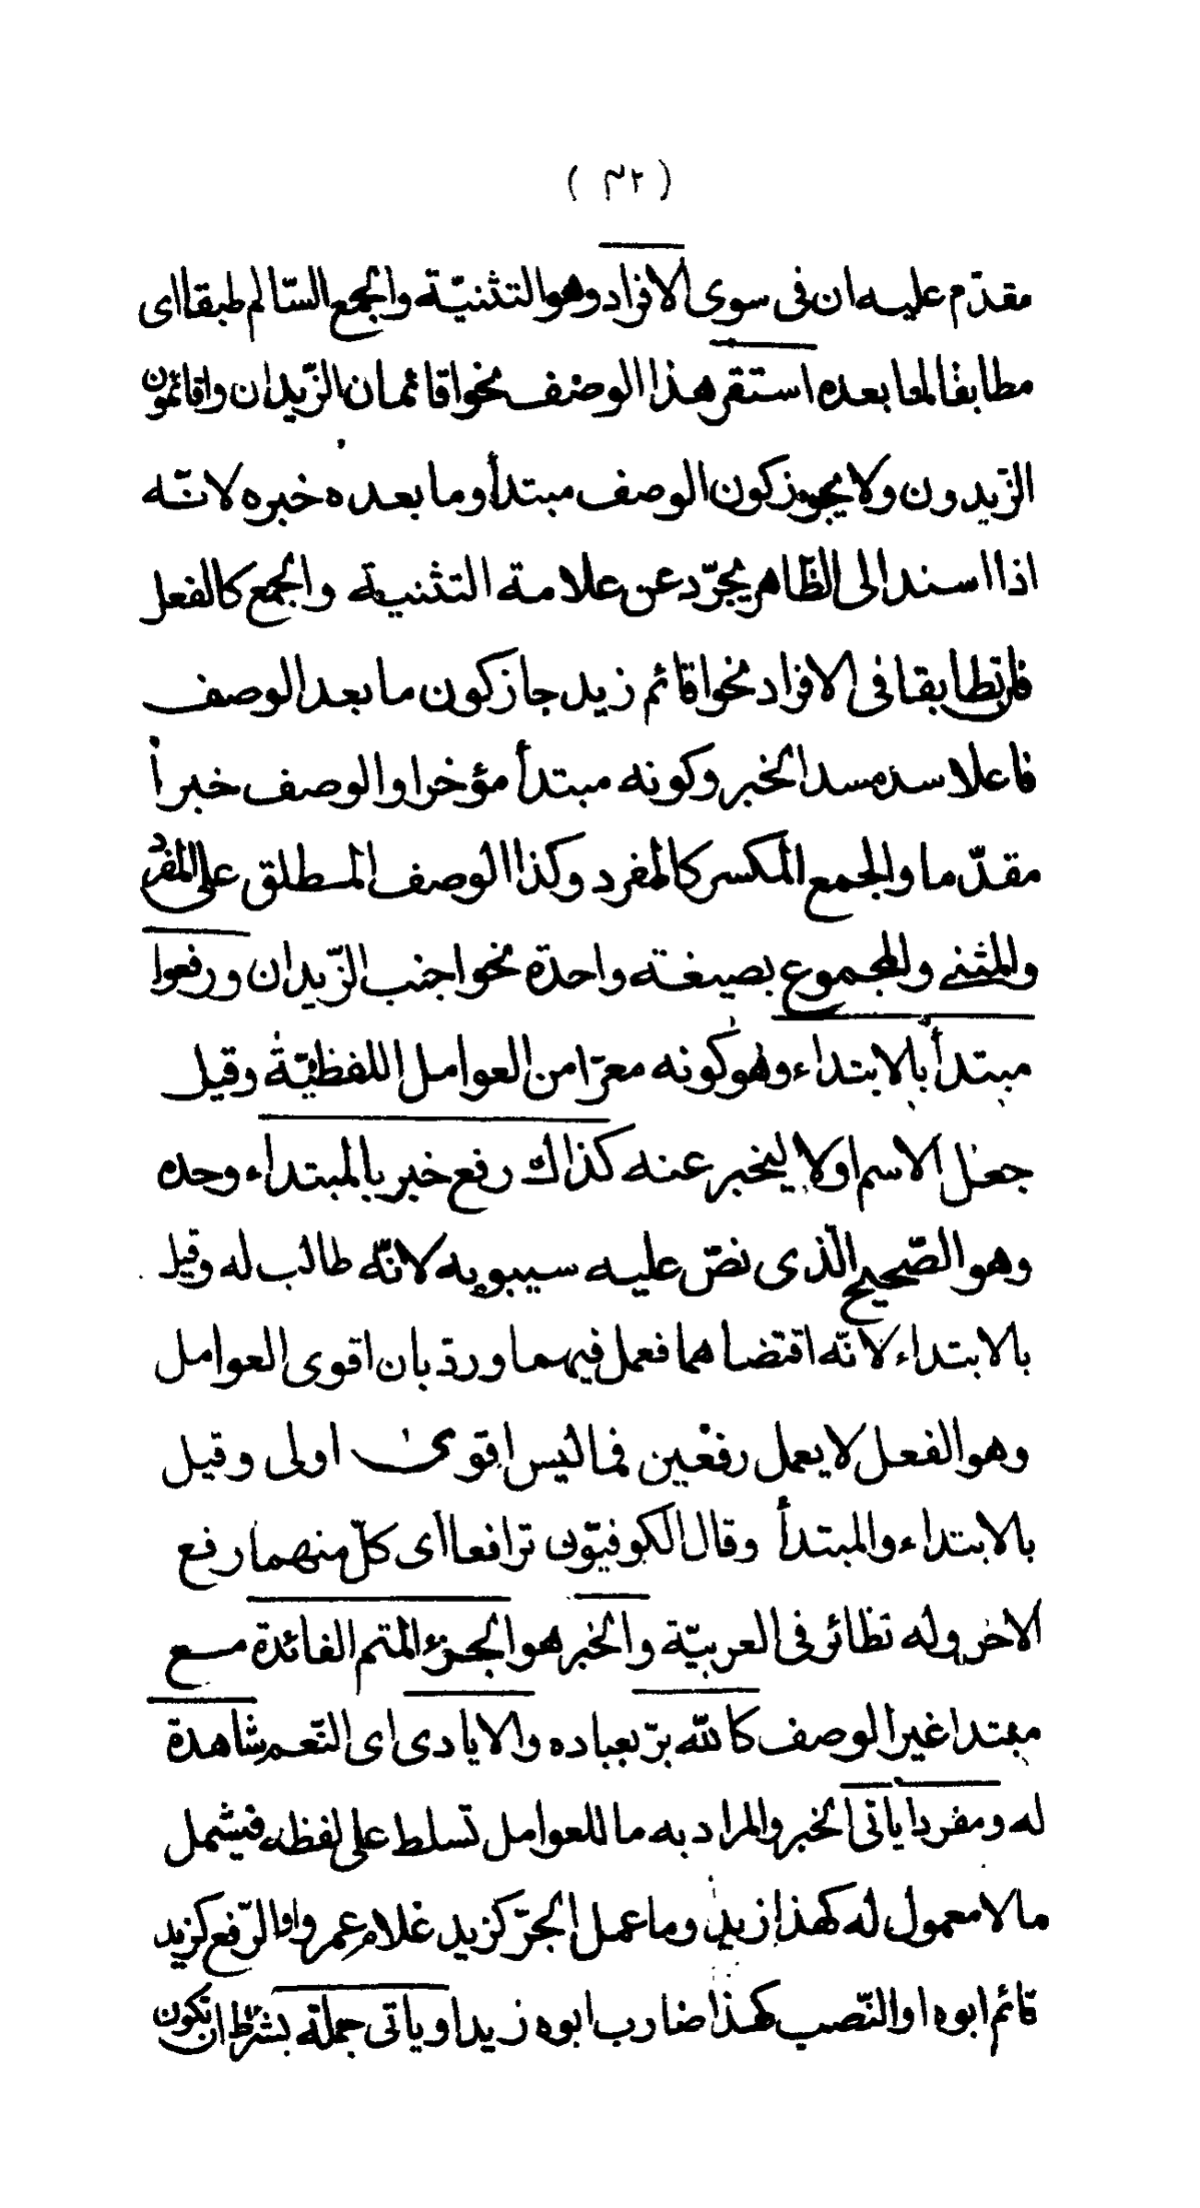 ( ٤٢ )
مقدّم عليه ان فى سوى الافراد وهو التثنيّة والجمع السّالم طبقا اى
مطابقا لما بعده استقر هذا الوصف نحو اقائمان الزّيدان واقائمون
الزّيدون ولا يجوز كون الوصف مبتدأ وما بعده خبره لانّه
اذا اسند الى الظّاهر يجرّد عن علامة التثنية والجمع كالفعل
فان تطابقا فى الافراد نحو اقائم زيد جاز كون ما بعد الوصف
فاعلا سد مسد الخبر وكونه مبتدأ مؤخرا والوصف خبراً
مقدّما والجمع المكسر كالمفرد وكذا الوصف المطلق على المفرد
والمثنى والمجموع بصيغة واحدة نحو اجنب الزّيدان ورفعوا
مبتدأ بالابتداء وهو كونه معرّا من العوامل اللفظيّة وقيل
جعل الاسم اولا ليخبر عنه كذاك رفع خبر بالمبتداء وحده
وهو الصّحيح الّذى نصّ عليه سيبويه لانّه طالب له وقيل
بالابتداء لانّه اقتضاهما فعمل فيهما وردّ بان اقوى العوامل
وهو الفعل لا يعمل رفعين فما ليس اقوى اولى وقيل
بالابتداء والمبتدأ وقال الكوفيّون ترافعا اى كلّ منهما رفع
الاخر وله نظائر فى العربيّة والخبر هو الجزء المتم الفائدة مع
مبتدا غير الوصف كالله برّ بعباده والايادى اى النّعم شاهدة
له ومفردا ياتى الخبر والمراد به ما للعوامل تسلط على لفظه فيشمل
ما لا معمول له كهذا زيد وما عمل الجرّ كزيد غلام عمرو او الرّفع كزيد
قائم ابوه او النّصب كهذا ضارب ابوه زيدا وياتى جملة بشرط ان تكون